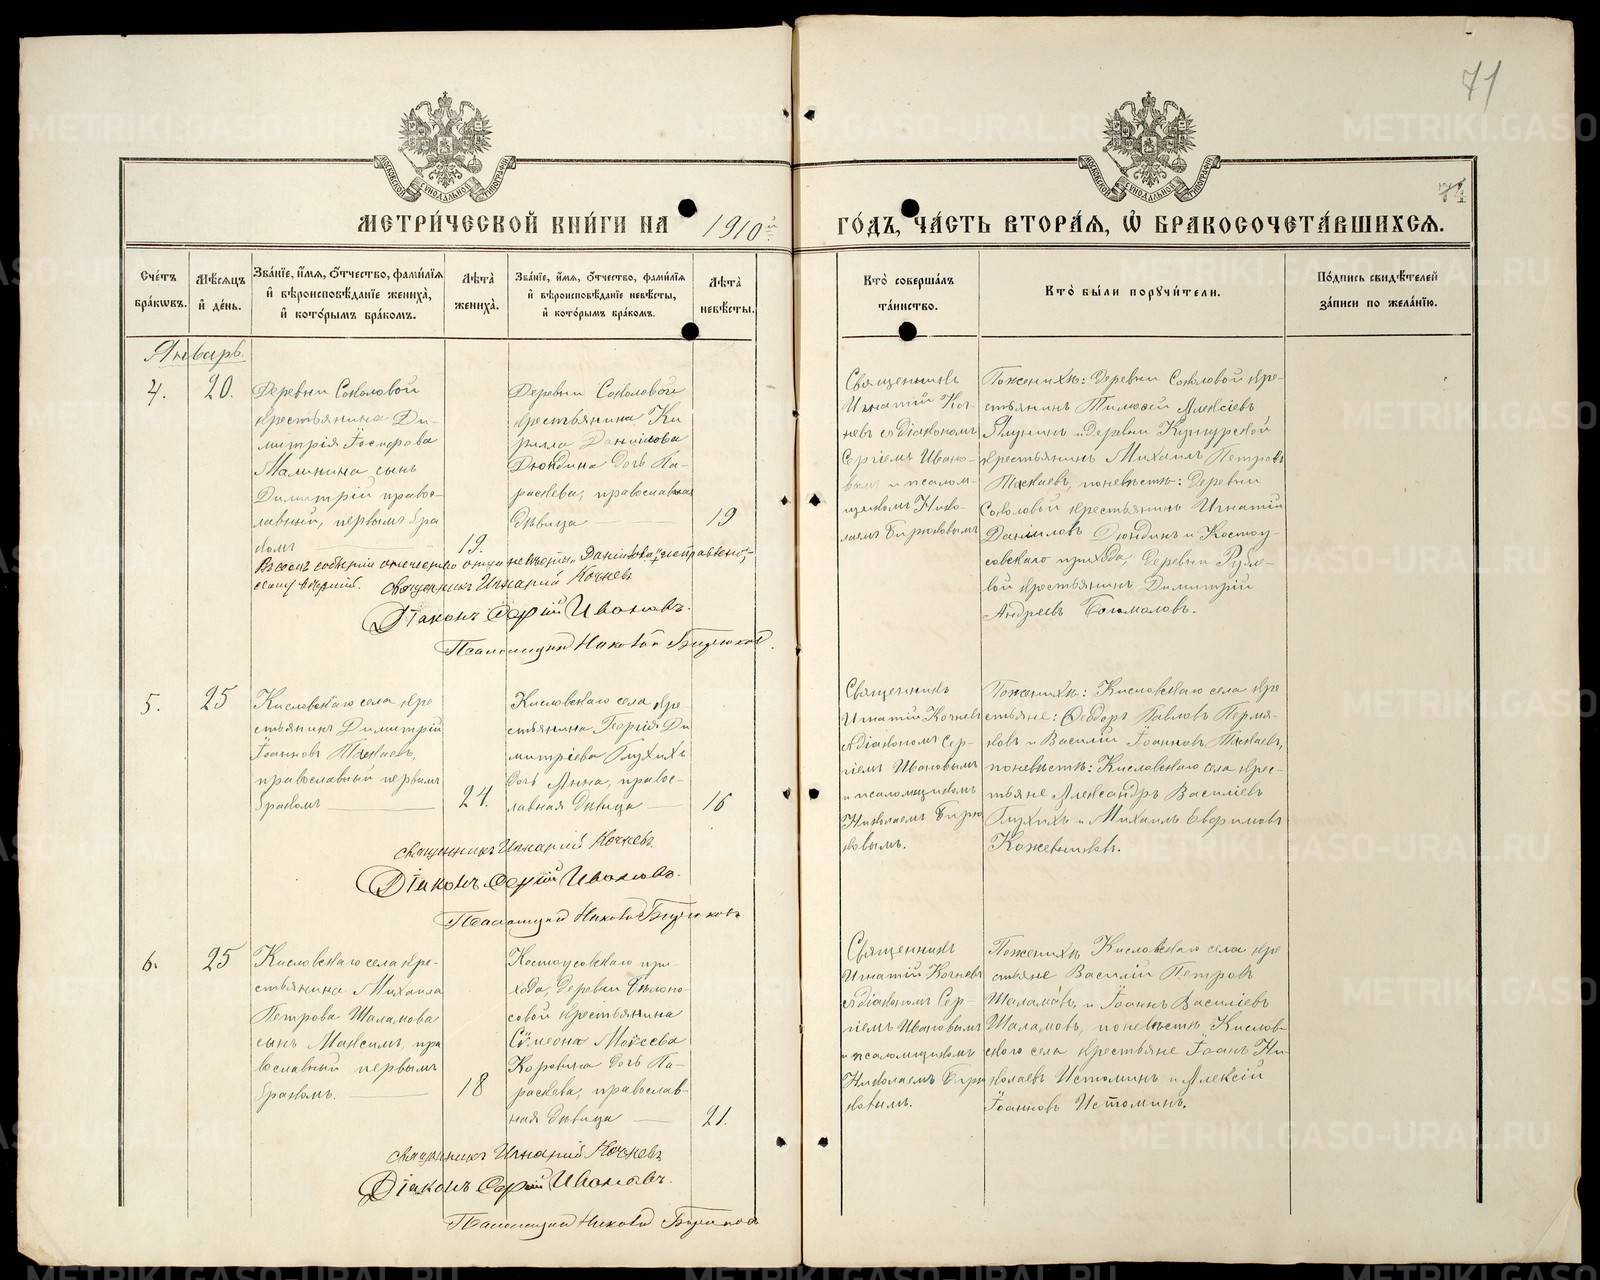 71
74
МОСКОВСКОЙ СѴНОДАЛЬНОЙ ТИПОГРАФІИ
МОСКОВСКОЙ СѴНОДАЛЬНОЙ ТИПОГРАФІИ
МЕТРИ́ЧЕСКОЙ КНИ́ГИ НА 1910й ГО́ДЪ, ЧА́СТЬ ВТОРА́Я, Ѽ БРАКОСОЧЕТА́ВШИХСѦ.
Сче́тъ
бра́кωвъ.
Мѣ́сѧцъ
и҆ де́нь.
Зва́нїе, и҆́мѧ, ѻ҆́тчество, фамі́лїѧ
и҆ вѣроисповѣ́данїе жениха̀,
и҆ кото́рымъ бра́комъ.
Лѣта̀
жениха̀.
Зва́нїе, и҆́мѧ, ѻ҆́тчество, фамі́лїѧ
и҆ вѣроисповѣ́данїе невѣ́сты,
и҆ кото́рымъ бра́комъ.
Лѣта̀
невѣ́сты.
Кто̀ соверша́лъ
та́инство.
Кто̀ бы́ли порꙋчи́тели.
По́дпись свидѣ́телей
за́писи по жела́нїю.
Январь.
4.
20.
Деревни Соколовой
крестьянина Ди-
митрія Іосифова
Малинина сынъ
Димитрій правос-
лавный, первымъ бра
комъ
19.
Деревни Соколовой
крестьянина Ки
рилла Данилова
Дюндина дочь Па-
раскева, православная
дѣвица
19
Священникъ
Игнатій Коч-
невъ съ діакономъ
Сергіемъ Ивано-
вымъ и псалом-
щикомъ Нико-
лаемъ Бирюковымъ
По женихѣ: Деревни Соколовой кре-
стьянинъ Тимоѳей Алексіевъ
Ялунинъ и деревни Кунгурской
крестьянинъ Михаилъ Петровъ
Токаевъ, по невѣстѣ: Деревни
Соколовой крестьянинъ Игнатій
Даниловъ Дюндинъ и Костоу-
совскаго прихода, Деревни
вой крестьянинъ Димитрій
Андреевъ
отчество отца невѣсты „Данилова" исправлено,
священникъ Игнатій Кочневъ
Діаконъ Сергій Ивановъ.
Псаломщикъ Николай Бирюковъ.
5.
25
Кисловскаго села кре
стьянинъ Димитрій
Іоанновъ Токаевъ,
православный первымъ
бракомъ
24.
Кисловскаго села кре-
стьянина Георгія Ди
митріева Глухихъ
дочь Анна, правос-
лавная дѣвица
16
Священникъ
Игнатій Кочневъ
съ діакономъ Сер-
гіемъ Ивановымъ
и псаломщикомъ
Николаемъ Бирю
ковымъ.
По женихѣ: Кисловскаго села кре
стьяне: Ѳеодоръ Павловъ Пермя-
ковъ и Василій Іоанновъ Токаевъ,
по невѣстѣ: Кисловскаго села крес-
тьяне Александръ Василіевъ
Глухихъ и Михаилъ Евфимовъ
Кожевниковъ.
священникъ Игнатій Кочневъ
Діаконъ Сергій Ивановъ.
Псаломщикъ Николай Бирюковъ
6.
25
Кисловскаго села кре-
стьянина Михаила
Петрова Шаламова
сынъ Максимъ, пра
вославный первымъ
бракомъ.
18
Костоусовскаго при-
хода, деревни Бѣлоно-
совой крестьянина
Сѵмеона Моѵсеева
Коровина дочь Па-
раскева, православ-
ная дѣвица
21.
Священникъ
Игнатій Кочневъ
съ діакономъ Сер-
гіемъ Ивановымъ
и псаломщикомъ
Николаемъ Бирю
ковымъ.
По женихѣ Кисловскаго села кре
стьяне Василій Петровъ
Шаламовъ, и Іоаннъ Василіевъ
Шаламовъ, по невѣстѣ Кислов-
скаго села крестьяне Іоаннъ Ни-
колаевъ Истоминъ и Алексій
Іоанновъ Истоминъ.
священникъ Игнатій Кочневъ
Діаконъ Сергій Ивановъ.
Псаломщикъ Николай Бирюковъ
METRIKI.GASO-URAL.RU